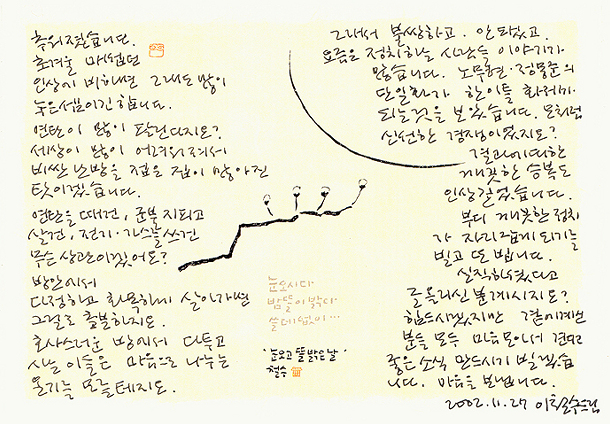 추워졌습니다.
초겨울 매섭던
인상에 비하면 그래도 많이
누그러진 셈이긴 합니다.
연탄이 많이 팔린다지요?
세상이 많이 어려워져서
비싼 난방을 접은 집이 많아진
탓이겠습니다.
연탄을 때건, 군불 지피고
살건, 전기·가스를 쓰건
무슨 상관이겠어요?
방안에서
다정하고 화목하게 살아가면
그걸로 충분하지요.
호사스러운 방에서 다투고
사는 이들은 마음으로 나누는
온기를 모를 테지요.
눈오시다
밤뜰이 밝다
쓸데없이…
'눈오고 뜰 밝은 날'
철수
그래서 불쌍하고. 안 되었고.
요즘은 정치하는 사람들 이야기가
많습니다. 노무현·정몽준의
단일화가 한이틀 화제가
되는 것을 보았습니다. 모처럼
신선한 경쟁이었지요?
결과에 대한
깨끗한 승복도
인상 깊었습니다.
부디 깨끗한 정치
가 자리잡게 되기를
빌고 또 빕니다.
실직하였다고
글 올리신 분 계시지요?
힘드시겠지만 곁에 계신
분들 모두 마음 모아서 견디고
좋은 소식 만드시기 빌겠습
니다. 마음을 보냅니다.
2002.11.27 이철수 드림